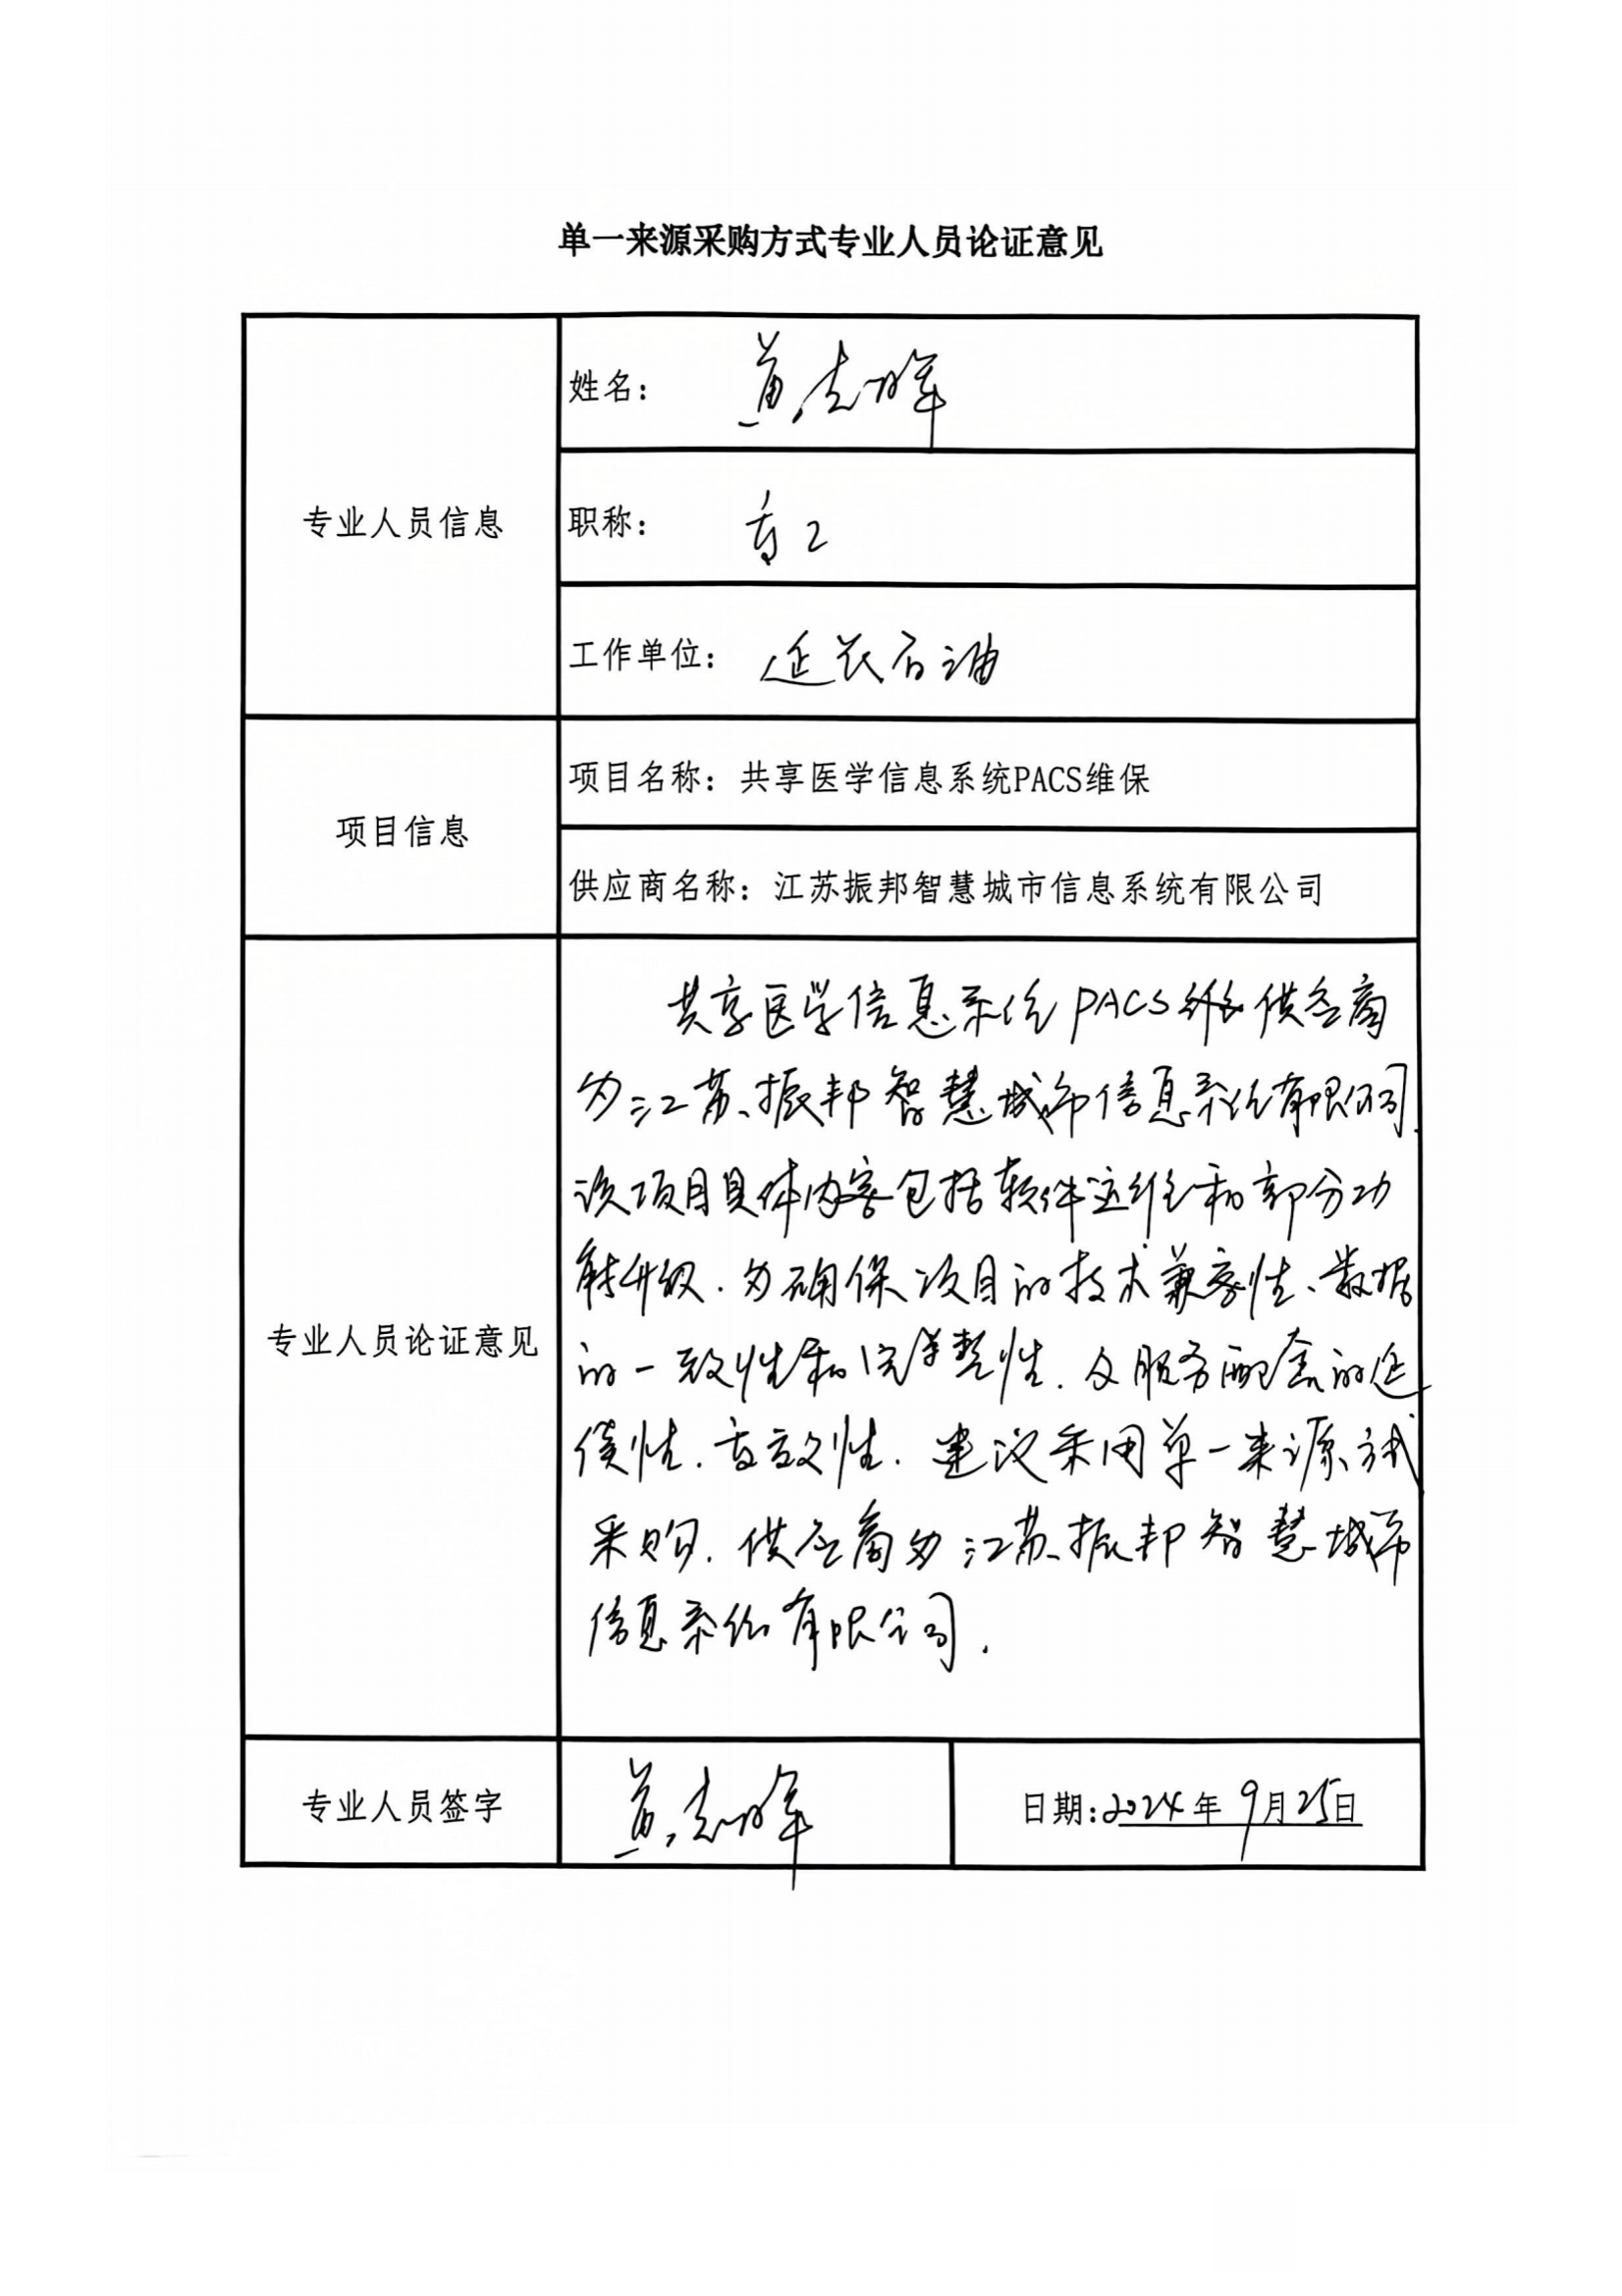 单一来源采购方式专业人员论证意见
专业人员信息
姓名： 黄志辉
职称： 高工
工作单位： 延长石油
项目信息
项目名称：共享医学信息系统PACS维保
供应商名称：江苏振邦智慧城市信息系统有限公司
专业人员论证意见
共享医学信息系统PACS维保供应商
为江苏振邦智慧城市信息系统有限公司.
该项目具体内容包括软件运维和部分功
能升级.为确保项目的技术兼容性、数据
的一致性和完整性.及服务配套的延
续性.高效性.建议采用单一来源方式
采购.供应商为江苏振邦智慧城市
信息系统有限公司.
专业人员签字
黄志辉
日期:2024年9月25日